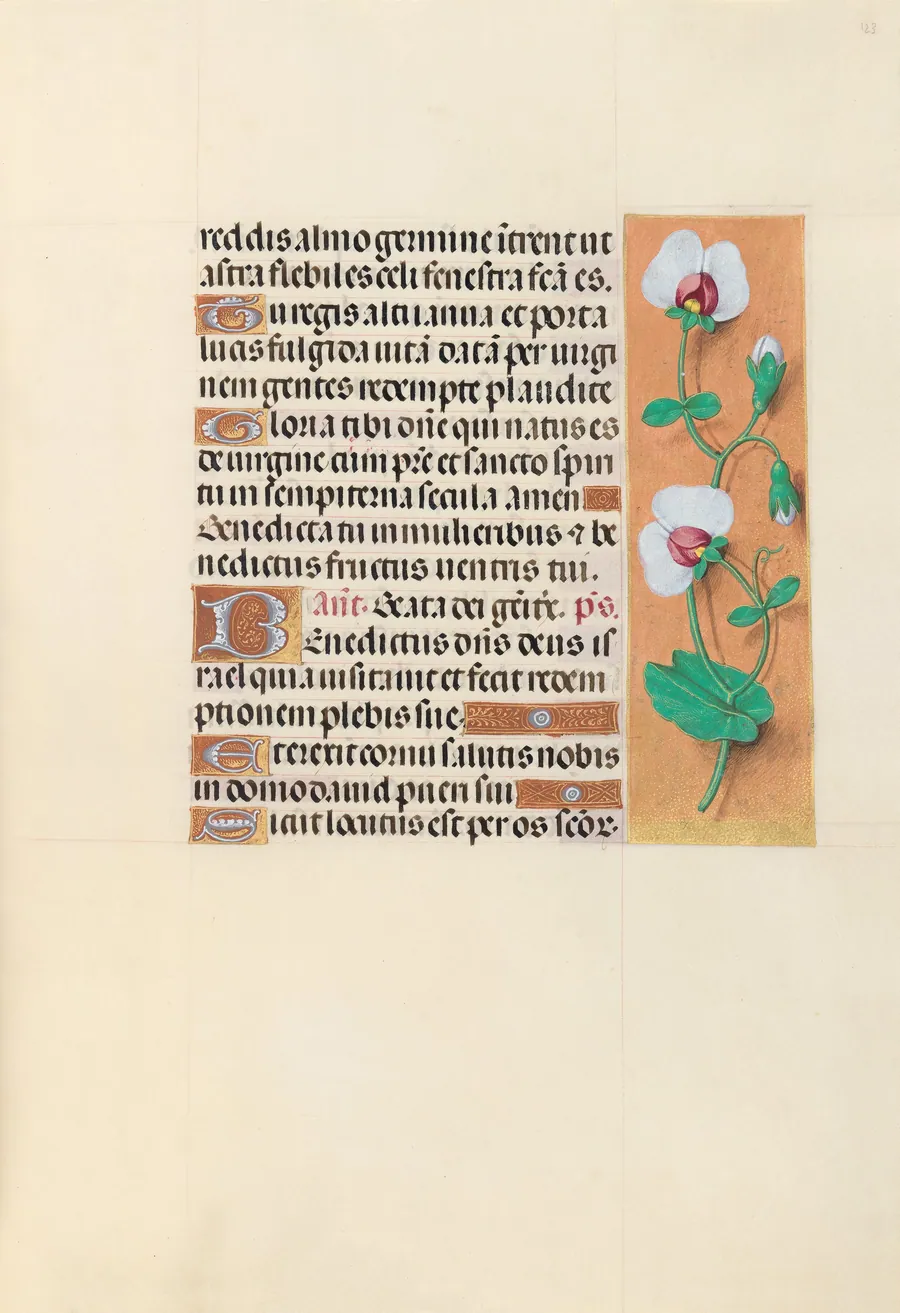 123
reddis almo germine ĩtrent ut
astra flebiles celi fenestra fcã es.
Tu regis alti ianua et porta
lucis fulgida uitã datã per uirgi
nem gentes redempte plaudite
Gloria tibi dñe qui natus es
de uirgine cum pr̃e et sancto spiri
tu in sempiterna secula amen
Benedicta tu in mulieribus ⁊ be
nedictus fructus uentris tui.
Añt. Beata dei geñitx. p̃s.
BEnedictus dñs deus is
rael quia uisitauit et fecit redem
ptionem plebis sue.
Et erexit cornu salutis nobis
in domo dauid pueri sui
Sicut locutus est per os scõr.